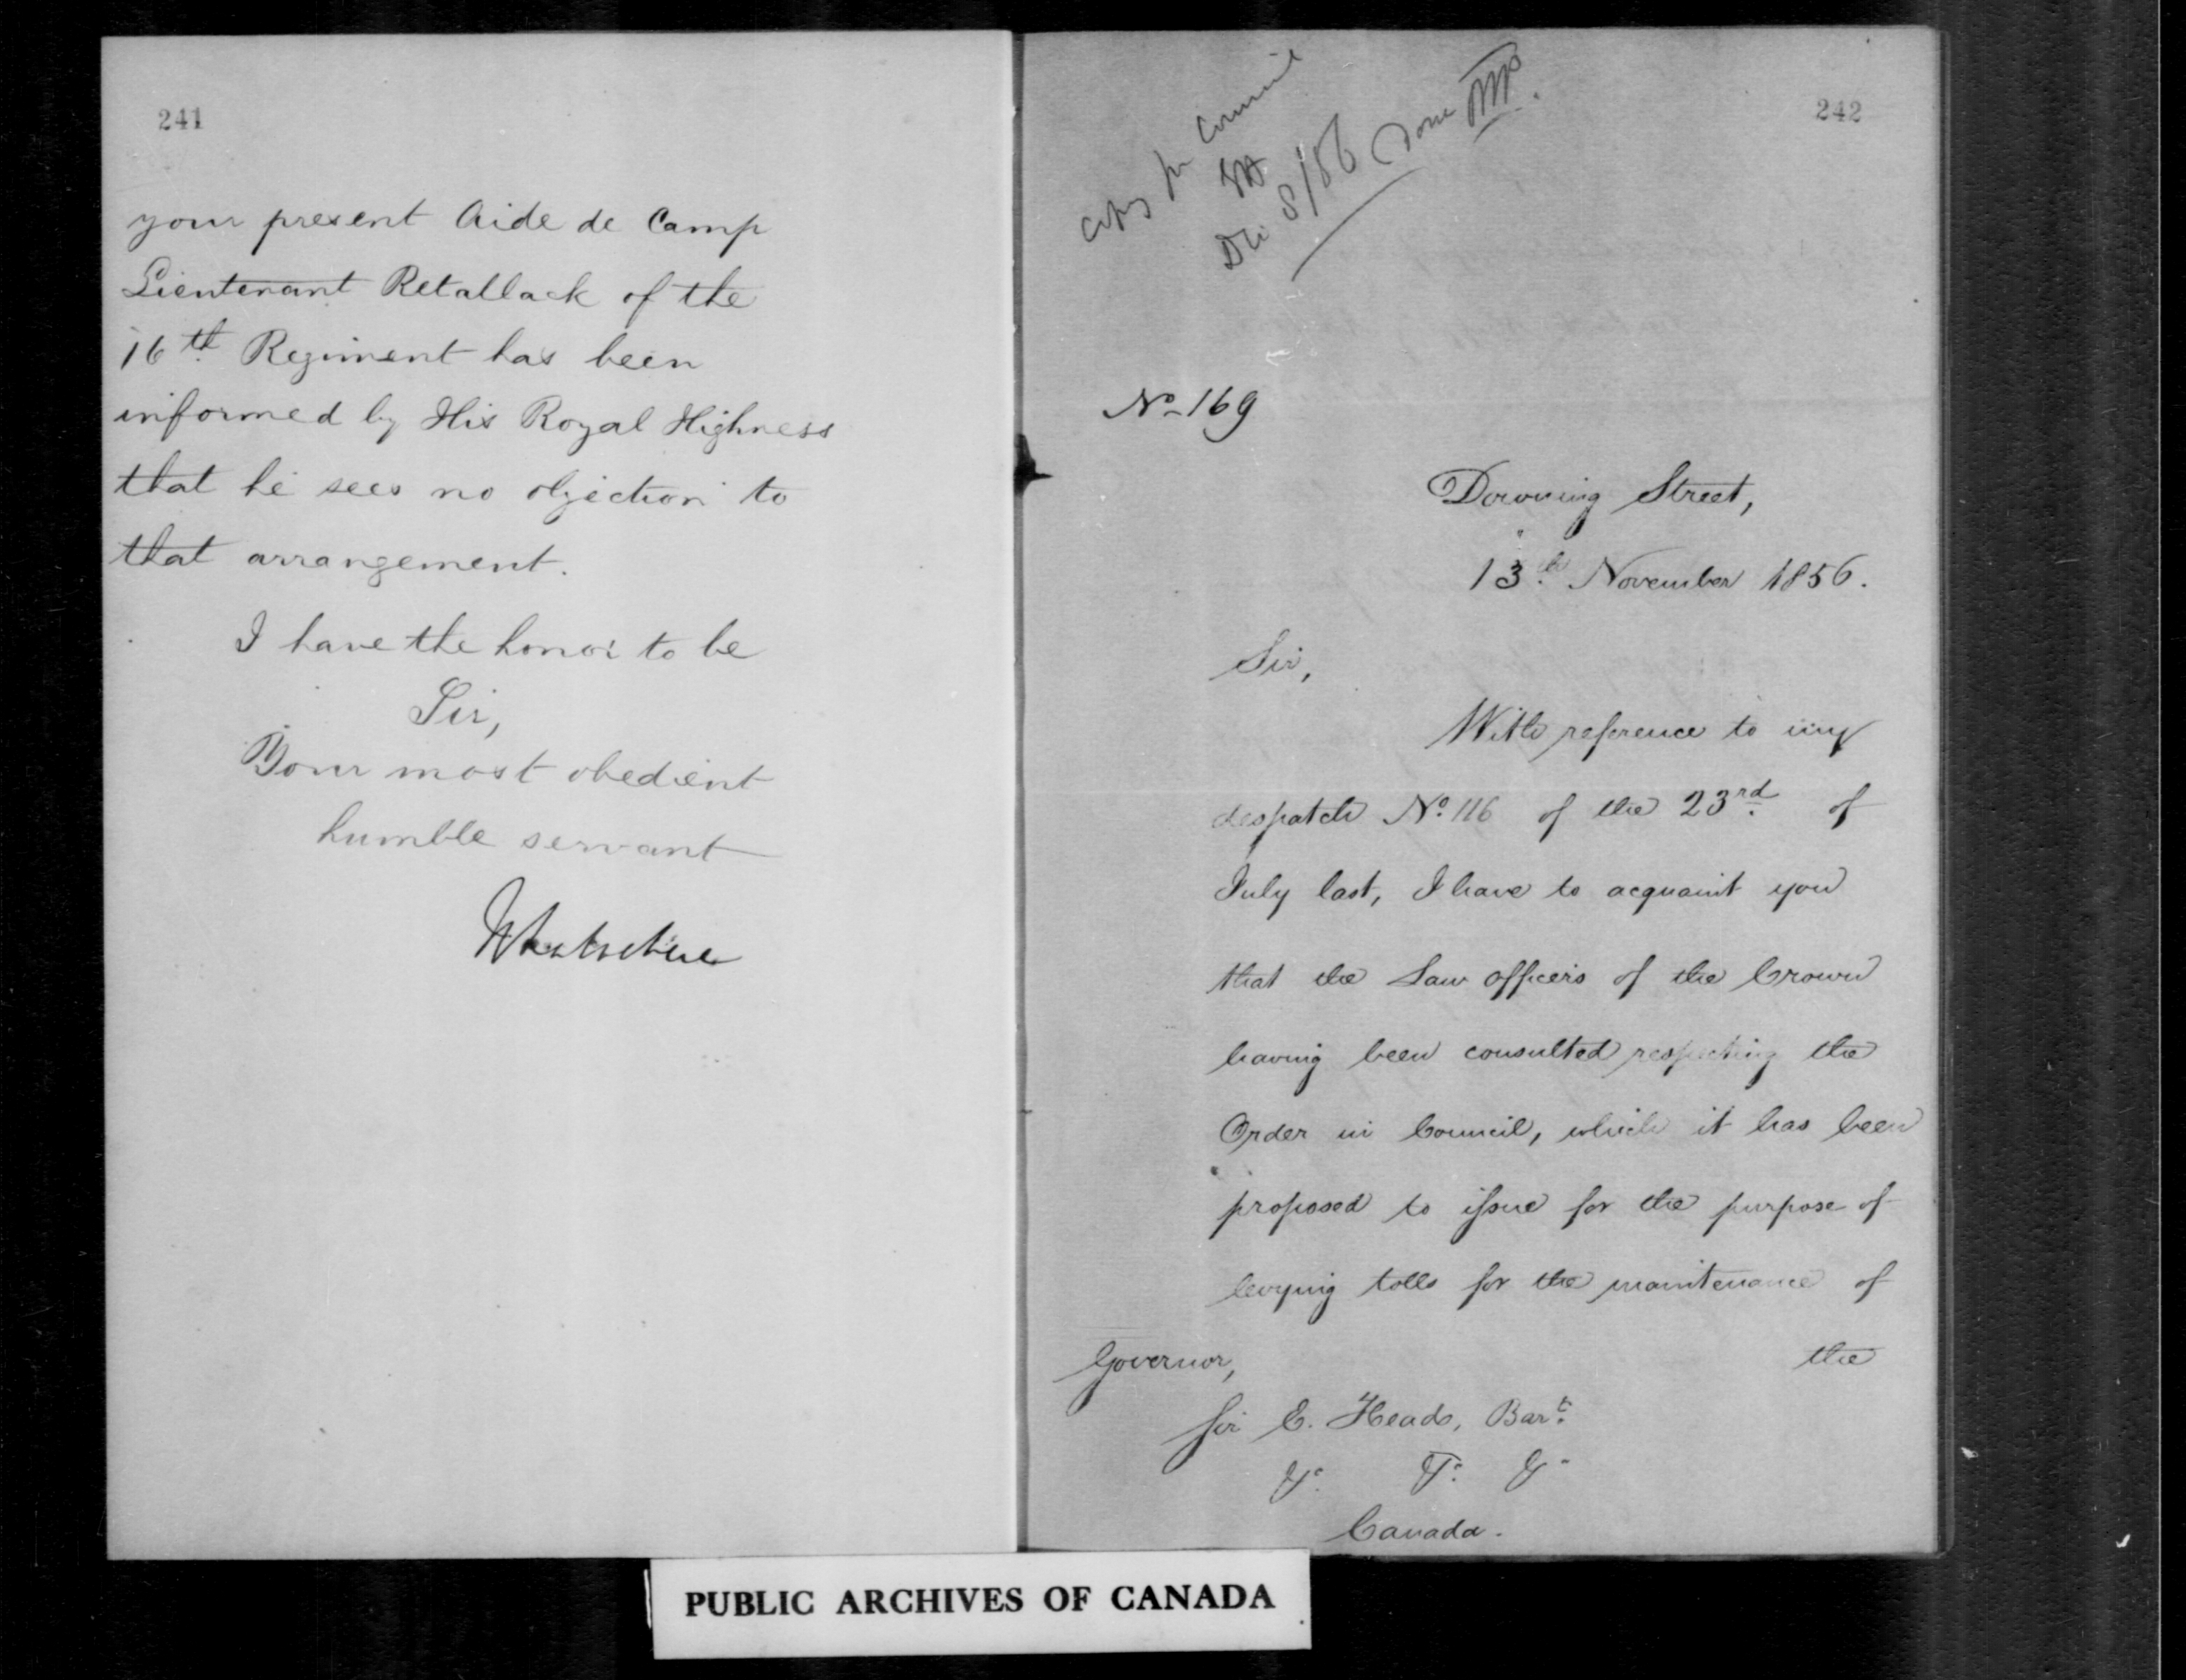 241
your present Aide de Camp
Lieutenant Retallack of the
16th Regiment has been
informed by His Royal Highness
that he sees no objection to
that arrangement.
I have the honor to be
Sir,
Your most obedient
humble servant
242
Copy for Council
Dec 8/56 Done
No 169
Downing Street,
13th November 1856.
Sir,
With reference to my
despatch No. 116 of the 23rd of
July last, I have to acquaint you
that the Law Officers of the Crown
having been consulted respecting the
Order in Council, which it has been
proposed to issue for the purpose of
levying tolls for the maintenance of
the
Governor,
Sir E. Head, Bart.
&c. &c. &c.
Canada.
PUBLIC ARCHIVES OF CANADA